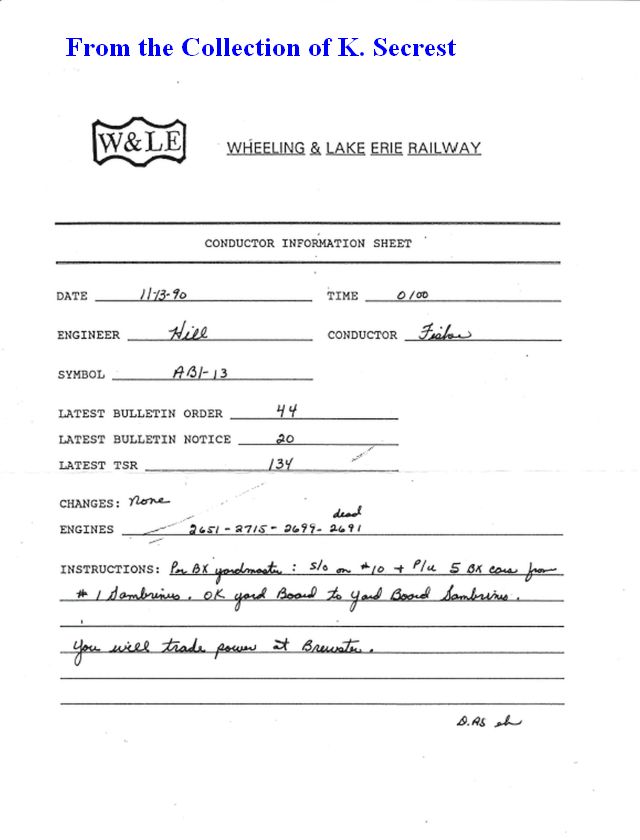 From the Collection of K. Secrest
W&LE
WHEELING & LAKE ERIE RAILWAY
CONDUCTOR INFORMATION SHEET
DATE 11-13-90 TIME 0100
ENGINEER Hill CONDUCTOR
SYMBOL AB1-13
LATEST BULLETIN ORDER 44
LATEST BULLETIN NOTICE 20
LATEST TSR 134
CHANGES: None
dead
ENGINES 2651-2715-2699-2691
INSTRUCTIONS: Per BX yardmaster: S/O on #10 + P/U 5 BX cars from
#1 Gambrinus. OK yard Board to yard Board Gambrinus.
You will trade power at Brewster.